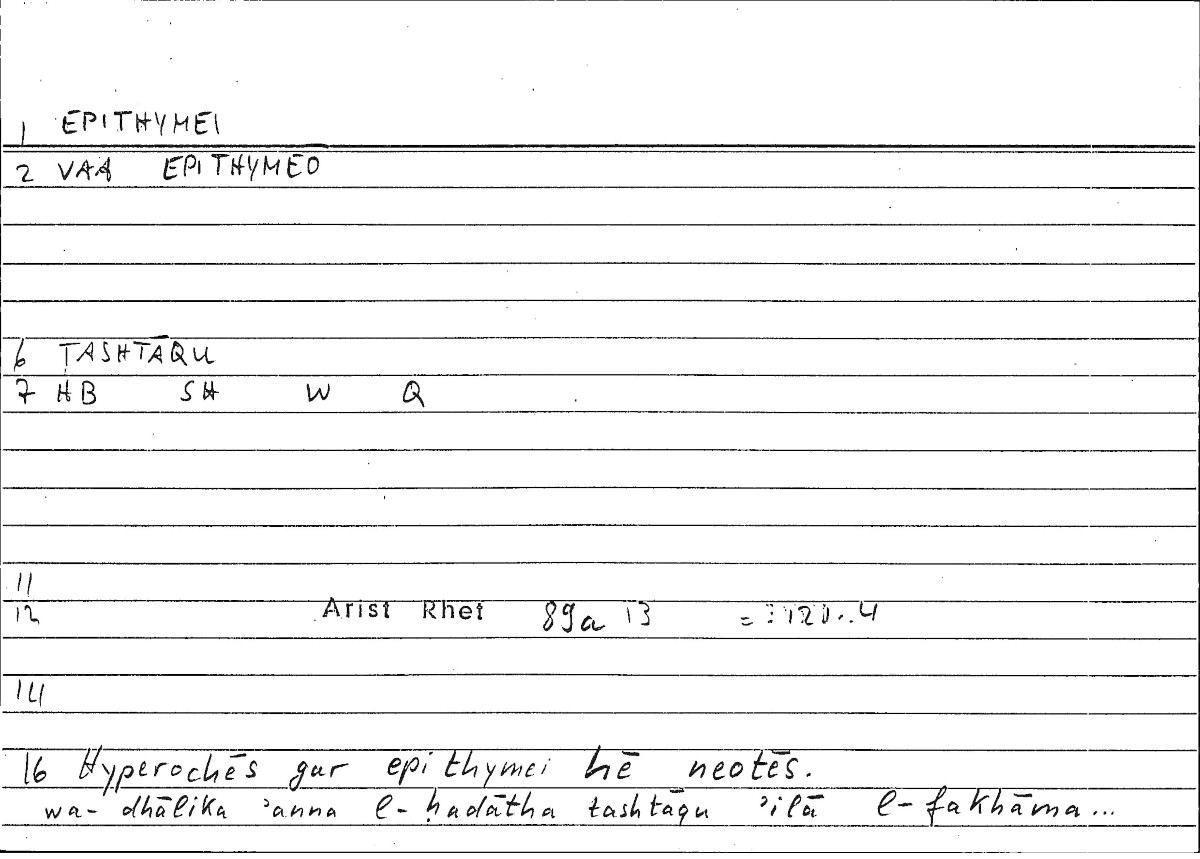 1 EPITHYMEI
2 VAA EPITHYMEO
6 TASHTĀQU
7 HB SH W Q
11
12 Arist Rhet 89a 13 =
14
16 Hyperochēs gar epithymei hē neotēs.
wa- dhālika ʾanna l-ḥadātha tashtāqu ʾilā l-fakhāma...